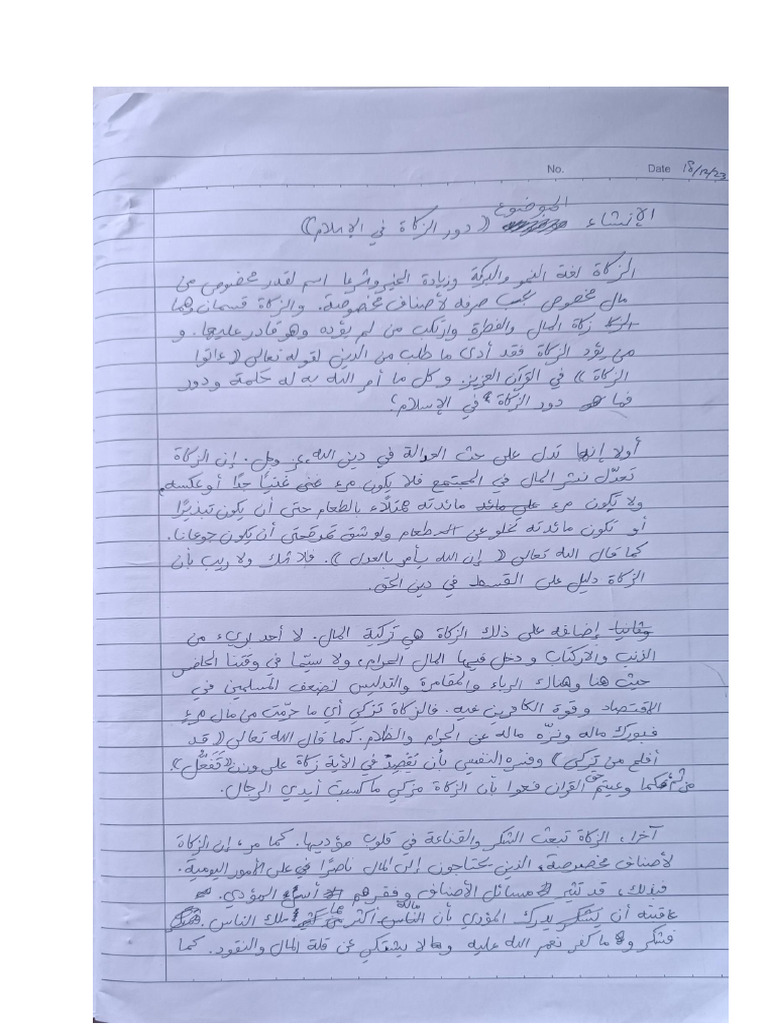 No. Date 18/12/23
الإنشاء الموضوع (( دور الزكاة في الإسلام ))
الزكاة لغة النمو والبركة وزيادة الخير وشرعا اسم لقدر مخصوص من
مال مخصوص يجب صرفه لأصناف مخصوصة. والزكاة قسمان وهما
زكاة المال والفطرة وارتكب من لم يؤده وهو قادر عليها. و
من يؤد الزكاة فقد أدى ما طلب من الدين لقوله تعالى (( ءاتوا
الزكاة )) في القرآن العزيز. وكل ما أمر الله به له حكمة ودور
فما هو دور الزكاة في الإسلام؟
أولا إنها تدل على حث العدالة في دين الله عز وجل. إن الزكاة
تعدّل نشر المال في المجتمع فلا يكون مرء غنى غنيًا جدًا أو عكسه.
ولا يكون مرء على مائد مائدته ممتلاء بالطعام حتى أن يكون تبذيرًا
أو تكون مائدته تخلو عن الطعام ولو شق تمرة حتى أن يكون جوعانا.
كما قال الله تعالى (( إن الله يأمر بالعدل )). فلا شك ولا ريب بأن
الزكاة دليل على القسط في دين الحق.
وثانيا إضافة على ذلك الزكاة هي تزكية المال. لا أحد بريء من
الذنب والارتكاب ودخل فيها المال الحرام، ولا سيّما في وقتنا الحاضر
حيث هنا وهناك الرباء والمقامرة والتدليس لضعف المسلمين في
الإقتصاد وقوة الكافرين فيه. فالزكاة تزكي أي ما حرّمت من مال مرء
فبورك ماله ونزّه ماله عن الحرام والظلام. كما قال الله تعالى (( قد
أفلح من تزكى )) وفسره النفيس بأن تقصد في الآية زكاة على وزن (( تَفَعُّل )).
من ثم وعيتم القران فعوا بأن الزكاة مزكي ما كسبت أيدي الرجال.
آخرا، الزكاة تبعث الشكر والقناعة في قلوب مؤديها. كما مرء إن الزكاة
لأصناف مخصوصة، الذين يحتاجون إلى المال ناصرًا في على الأمور اليومية.
فبذلك، قد تثير مسائل الأصناف وفقرهم المؤدي.
عاقبته أن يُشكر يدرك المؤدي بأن ماله أكثر مما ملك الناس.
فشكر وما كفر نعم الله عليه ولا يشتكي عن قلة المال والنقود. كما